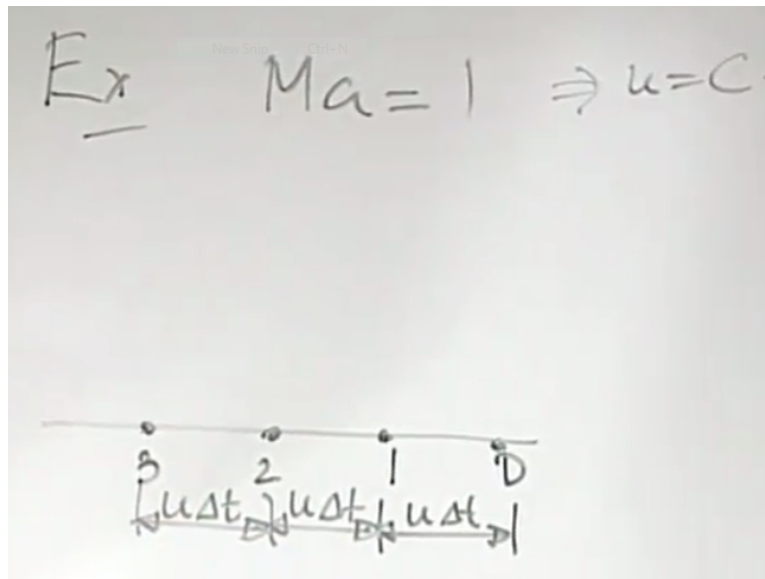 New Snip Ctrl+N
Ex Ma = 1 ⇒ u = C
3 2 1 0
uΔt uΔt uΔt